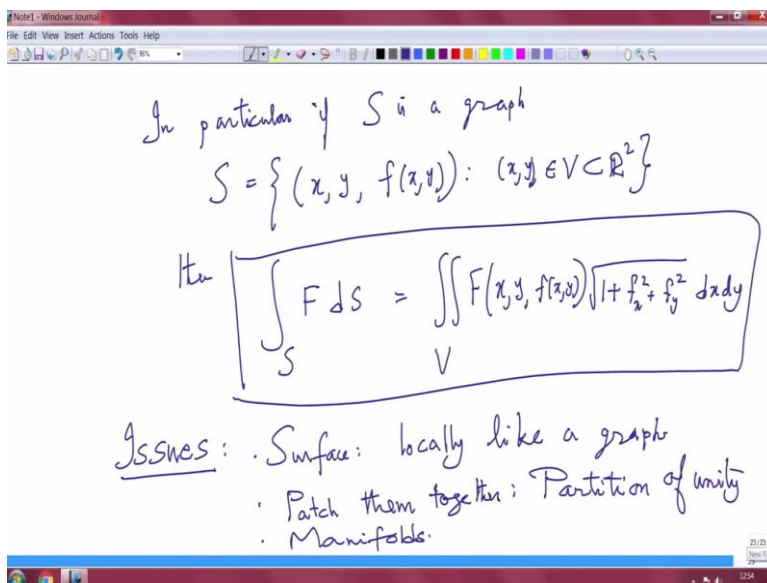 Note1 - Windows Journal
File Edit View Insert Actions Tools Help
In particular if S is a graph
S = { (x, y, f(x,y)) : (x,y) ∈ V ⊂ ℝ² }
then
∫_S F dS = ∬_V F(x, y, f(x,y)) √(1 + f_x² + f_y²) dxdy
Issues : . Surface : locally like a graph
. Patch them together : Partition of unity
. Manifolds.
23/23
1254